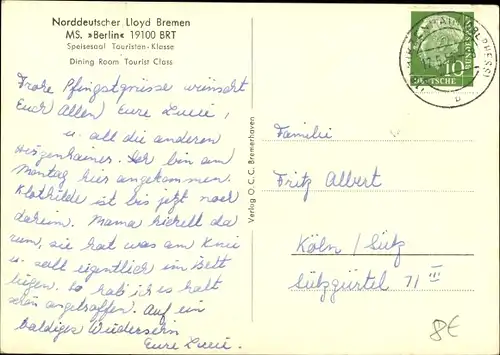 Norddeutscher Lloyd Bremen
MS. »Berlin« 19100 BRT
Speisesaal Touristen-Klasse
Dining Room Tourist Class
Frohe Pfingstgrüsse wünscht
Euch Allen Eure Lucie,
u. all die anderen
Heizenhainer. Ich bin am
Montag hier angekommen.
Klothilde ist bis jetzt noch
daheim. Mama hickelt da
rum, sie hat was am Knie
u. sollt eigentlich im Bett
liegen. So hab ich es halt
schön angetroffen. Auf ein
baldiges Wiedersehn
Eure Lucie.
Verlag O.C.C. Bremerhaven
DEUTSCHE
BUNDESPOST
10
Familie
Fritz Albert
Köln / Sülz
Sülzgürtel 71 III
8€